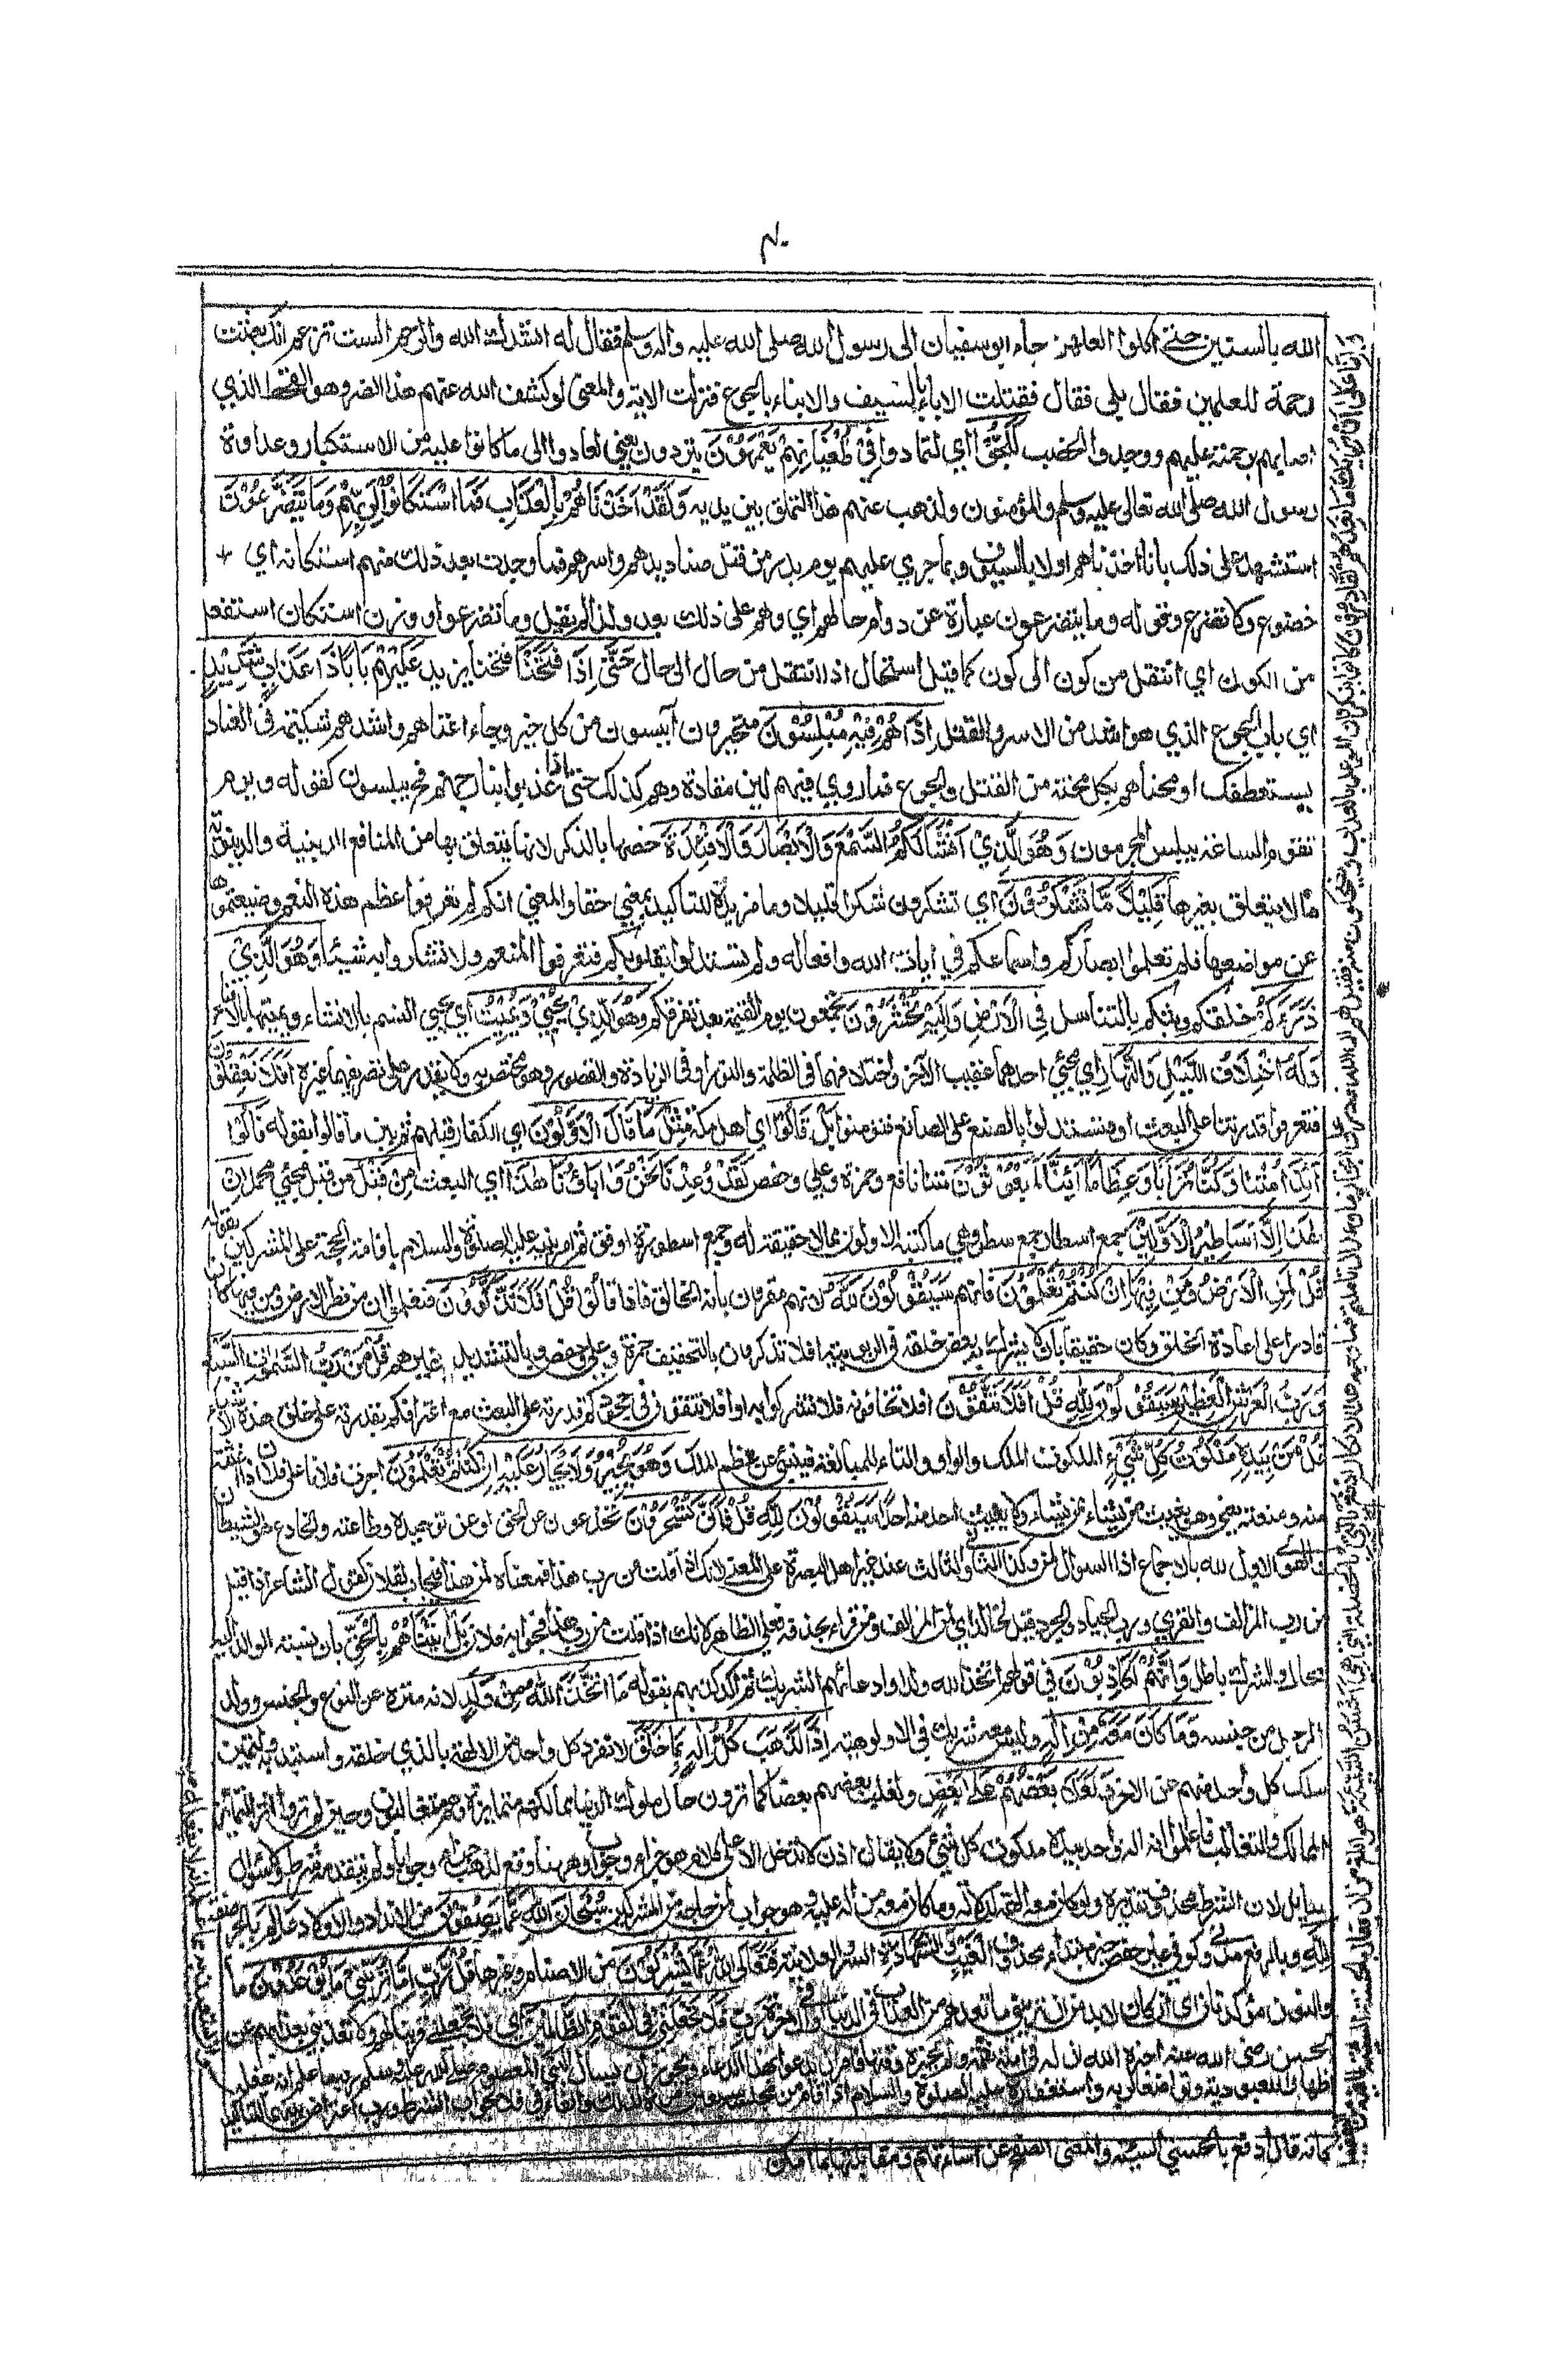 الله بالسنين حتى اكلوا العلهز جاء ابو سفيان الى رسول الله صلى الله عليه واله وسلم فقال له انشدك الله والرحم الست تزعم انك بعثت
رحمة للعلمين فقال بلى فقال فقد قتلت الاباء بالسيف والابناء بالجوع فنزلت الاية والمعنى لو كشف الله عنهم هذا الضر وهو القحط الذي
اصابهم برحمته عليهم ووجدوا الخصب لَلَجُّوْا اي لتمادوا فِيْ طُغْيَانِهِمْ يَعْمَهُوْنَ يترددون يعني لعادوا الى ما كانوا عليه من الاستكبار وعداوة
رسول الله صلى الله تعالى عليه وسلم والمؤمنون ولذهب عنهم هذا التملق بين يديه وَلَقَدْ اَخَذْنَاهُمْ بِالْعَذَابِ فَمَا اسْتَكَانُوْا لِرَبِّهِمْ وَمَا يَتَضَرَّعُوْنَ
استشهد على ذلك بانا اخذناهم اولا بالسيوف وبما جرى عليهم يوم بدر من قتل صناديدهم واسرهم فما وجدت بعد ذلك منهم استكانة اي
خضوع ولا تضرع وقوله وما يتضرعون عبارة عن دوام حالهم اي وهم على ذلك بعد ولذا لم يقل وما تضرعوا ووزن استكان استفعل
من الكون اي انتقل من كون الى كون كما قيل استحال اذا انتقل من حال الى حال حَتّٰى اِذَا فَتَحْنَا فتحنا يزيد عَلَيْهِمْ بَابًا ذَا عَذَابٍ شَدِيْدٍ
اي باب الجوع الذي هو اشد من الاسر والقتل اِذَا هُمْ فِيْهِ مُبْلِسُوْنَ متحيرون آيسون من كل خير وجاء اعتاهم واشدهم شكيمة في العناد
يستعطفك او محناهم بكل محنة من القتل والجوع فما روي فيهم لين مقادة وهم كذلك حتى اذا عذبوا بنار جهنم فح يبلسون كقوله ويوم
تقوم الساعة يبلس المجرمون وَهُوَ الَّذِيْ اَنْشَأَ لَكُمُ السَّمْعَ وَالْاَبْصَارَ وَالْاَفْئِدَةَ خصها بالذكر لانها يتعلق بها من المنافع الدينية والدنيوية
ما لا يتعلق بغيرها قَلِيْلًا مَّا تَشْكُرُوْنَ اي تشكرون شكرا قليلا وما مزيدة للتاكيد بمعنى حقا والمعنى انكم لم تعرفوا عظم هذه النعم وضيعتموها
عن مواضعها فلم تعملوا ابصاركم واسماعكم في ايات الله وافعاله ولم تستدلوا بقلوبكم فتعرفوا المنعم ولا تشكروا به شيئا وَهُوَ الَّذِيْ
ذَرَاَكُمْ خلقكم وبثكم بالتناسل فِي الْاَرْضِ وَاِلَيْهِ تُحْشَرُوْنَ تجمعون يوم القيمة بعد تفرقكم وَهُوَ الَّذِيْ يُحْيِيْ وَيُمِيْتُ اي يحيي النسم بالانشاء ويميتها بالافناء
وَلَهُ اخْتِلَافُ اللَّيْلِ وَالنَّهَارِ اي مجيئ احدهما عقيب الآخر واختلافهما في الظلمة والنور او في الزيادة والقصور وهو مختص به ولا يقدر على تصريفهما غيره اَفَلَا تَعْقِلُوْنَ
فتعرفوا قدرتنا على البعث او فتستدلوا بالصنع على الصانع فتؤمنوا بَلْ قَالُوْا اي اهل مكة مِثْلَ مَا قَالَ الْاَوَّلُوْنَ اي الكفار قبلهم ثم بين ما قالوا بقوله قَالُوْا
اَئِذَا مِتْنَا وَكُنَّا تُرَابًا وَّعِظَامًا اَئِنَّا لَمَبْعُوْثُوْنَ متنا نافع وحمزة وعلي وحفص لَقَدْ وُعِدْنَا نَحْنُ وَاٰبَاؤُنَا هٰذَا اي البعث مِنْ قَبْلُ من قبل مجيئ محمد اِنْ
هٰذَا اِلَّا اَسَاطِيْرُ الْاَوَّلِيْنَ جمع اسطار جمع سطر وهي ما كتبه الاولون مما لا حقيقة له وجمع اسطورة اوفق ثم امر نبيه عليه الصلوة والسلام باقامة الحجة على المشركين بقوله
قُلْ لِمَنِ الْاَرْضُ وَمَنْ فِيْهَا اِنْ كُنْتُمْ تَعْلَمُوْنَ فانهم سَيَقُوْلُوْنَ لِلّٰهِ لانهم مقرون بانه الخالق فاذا قالوا قُلْ اَفَلَا تَذَكَّرُوْنَ فتعلموا ان من فطر الارض ومن فيها كان
قادرا على اعادة الخلق وكان حقيقا بان لا يشرك به بعض خلقه في الربوبية افلا تذكرون بالتخفيف حمزة وعلي وحفص وبالتشديد غيرهم قُلْ مَنْ رَبُّ السَّمٰوٰتِ السَّبْعِ
وَرَبُّ الْعَرْشِ الْعَظِيْمِ سَيَقُوْلُوْنَ لِلّٰهِ قُلْ اَفَلَا تَتَّقُوْنَ افلا تخافونه فلا تشركوا به او افلا تتقون في جحودكم قدرته على البعث مع اعترافكم بقدرته على خلق هذه الاشياء
قُلْ مَنْ بِيَدِهٖ مَلَكُوْتُ كُلِّ شَيْءٍ الملكوت الملك والواو والتاء للمبالغة فينبئ عن عظم الملك وَهُوَ يُجِيْرُ وَلَا يُجَارُ عَلَيْهِ اِنْ كُنْتُمْ تَعْلَمُوْنَ اجرت فلانا على فلان اذا اغثته
منه ومنعته يعني وهو يغيث من يشاء ممن يشاء ولا يغيث احد منه احدا سَيَقُوْلُوْنَ لِلّٰهِ قُلْ فَاَنّٰى تُسْحَرُوْنَ تخدعون عن الحق او عن توحيده وطاعته والخادع هو الشيطان
والهوى الاول لله بالاجماع اذ السؤال لمن وكذا الثاني والثالث عند غير اهل البصرة على المعنى لانك اذا قلت من رب هذا فمعناه لمن هذا فيجاب لفلان كقول الشاعر اذا قيل
من رب المزالف والقرى ورب الجياد الجرد قيل لخالد اي لمن المزالف ومن قراء بحذفه فعلى الظاهر لانك اذا قلت من رب هذا فجوابه فلان بَلْ اَتَيْنَاهُمْ بِالْحَقِّ بان نسبة الولد اليه
محال والشرك باطل وَاِنَّهُمْ لَكَاذِبُوْنَ في قولهم اتخذ الله ولدا وادعائهم الشريك ثم اكد كذبهم بقوله مَا اتَّخَذَ اللهُ مِنْ وَلَدٍ لانه منزه عن النوع والجنس وولد
الرجل من جنسه وَمَا كَانَ مَعَهُ مِنْ اِلٰهٍ وليس معه شريك في الالوهية اِذًا لَذَهَبَ كُلُّ اِلٰهٍ بِمَا خَلَقَ لانفرد كل واحد من الالهة بالذي خلقه واستبد به وليتميز
ملك كل واحد منهم من الاخر وَلَعَلَا بَعْضُهُمْ عَلٰى بَعْضٍ ولغلب بعضهم بعضا كما ترون حال ملوك الدنيا ممالكهم متمايزة وهم متغالبون وحين لم تروا اثرا لتمايز
الممالك والتغالب فاعلموا انه اله واحد بيده ملكوت كل شيئ ولا يقال اذن لا تدخل الا على كلام هو جزاء وجواب وههنا وقع لذهب جزاء وجوابا ولم يتقدمه شرط ولا سؤال
سايل لان الشرط محذوف تقديره ولو كان معه الهة لدلالة وما كان معه من اله عليه وهو جواب لمن حاجه من المشركين سُبْحَانَ اللهِ عَمَّا يَصِفُوْنَ من الانداد والاولاد عَالِمِ بالجر صفة
لله وبالرفع مدني وكوفي غير حفص خبر مبتداء محذوف الْغَيْبِ وَالشَّهَادَةِ السر والعلانية فَتَعَالَى اللهُ عَمَّا يُشْرِكُوْنَ من الاصنام وغيرها قُلْ رَّبِّ اِمَّا تُرِيَنِّيْ مَا يُوْعَدُوْنَ ما
والنون مؤكدتان اي ان كان لابد من ان تريني ما تعدهم من العذاب في الدنيا او في الاخرة رَبِّ فَلَا تَجْعَلْنِيْ فِي الْقَوْمِ الظَّالِمِيْنَ اي فلا تجعلني قرينا لهم ولا تعذبني بعذابهم عن
الحسن رضي الله عنه اخبره الله ان له في امته نقمة ولم يخبره وقتها فامر ان يدعوا بهذا الدعاء ويجوز ان يسال النبي المعصوم صلى الله عليه وسلم ربه ما علم انه يفعله
اظهارا للعبودية وتواضعا لربه واستغفاره عليه الصلوة والسلام اذا قام من مجلسه
كما نه قال ادفع بالحسنى السيئة والمعنى الصفح عن اساءتهم ومقابلتها بما امكن